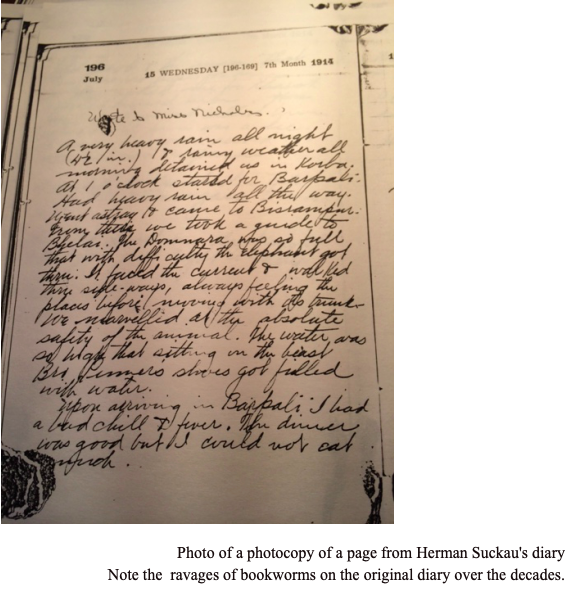 196
July
15 WEDNESDAY [196-169] 7th Month 1914
Wrote to Miss Nicholas.
A very heavy rain all night
(4½ in.) & rainy weather all
morning detained us in Korba.
At 1 o'clock started for Barpali.
Had heavy rain all the way.
Went astray & came to Bisrampur.
From there we took a guide to
The was so full
that with difficulty the elephant got
thru. It faced the current & walked
thru side-ways, always feeling the
places before moving with its trunk.
We marvelled at the absolute
safety of the animal. The water was
so high that sitting on the beast
Bro. shoes got filled
with water.
Upon arriving in Barpali I had
a bad chill & fever. The dinner
was good but I could not eat
much.
Photo of a photocopy of a page from Herman Suckau's diary
Note the ravages of bookworms on the original diary over the decades.